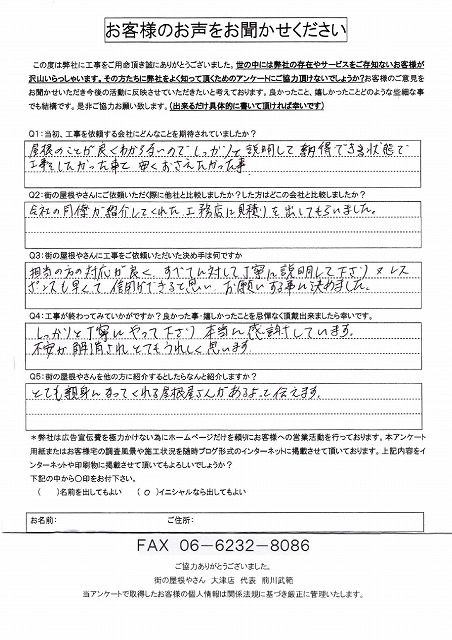 お客様のお声をお聞かせください
この度は弊社に工事をご用命頂き誠にありがとうございました。世の中には弊社の存在やサービスをご存知ないお客様が
沢山いらっしゃいます。その方たちに弊社をよく知って頂くためのアンケートにご協力頂けないでしょうか?お客様のご意見を
お聞かせいただき今後の活動に反映させていただきたいと考えております。良かったこと、嬉しかったことどのような些細な事
でも結構です。是非ご協力お願い致します。(出来るだけ具体的に書いて頂ければ幸いです)
Q1:当初、工事を依頼する会社にどんなことを期待されていましたか?
屋根のことが良くわからないのでしっかりと説明して納得できる状態で
工事をしたかった事と安くおさえたかった事
Q2:街の屋根やさんにご依頼いただく際に他社と比較しましたか?した方はどこの会社と比較しましたか?
会社の同僚が紹介してくれた工務店に見積りを出してもらいました。
Q3:街の屋根やさんに工事をご依頼いただいた決め手は何ですか
担当の方の対応が良く、すべてに対して丁寧に説明して下さり又レス
ポンスも早くて信用ができると思いお願いする事に決めました。
Q4:工事が終わってみていかがですか?良かった事・嬉しかったことを忌憚なく頂戴出来ましたら幸いです。
しっかりと丁寧にやって下さり本当に感謝しています。
不安が解消されとてもうれしく思います
Q5:街の屋根やさんを他の方に紹介するとしたらなんと紹介しますか?
とても親身になってくれる屋根屋さんがあるよって伝えます。
*弊社は広告宣伝費を極力かけない為にホームページだけを頼りにお客様への営業活動を行っております。本アンケート
用紙またはお客様宅の調査風景や施工状況を随時ブログ形式のインターネットに掲載させて頂いております。上記内容をイ
ンターネットや印刷物に掲載させて頂いてもよろしいでしょうか?
下記の中から〇印をお付下さい。
( )名前を出してもよい (○)イニシャルなら出してもよい
お名前: ご住所:
FAX 06-6232-8086
ご協力ありがとうございました。
街の屋根やさん 大津店 代表 前川武範
当アンケートで取得したお客様の個人情報は関係法規に基づき厳正に管理いたします。